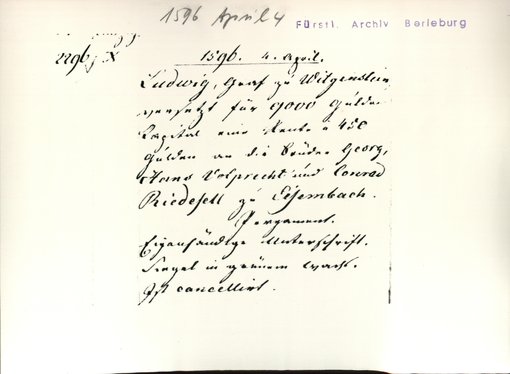 1596 April 4
Fürstl. Archiv Berleburg
2296, X
1596. 4. April.
Ludwig, Graf zu Witgenstein
versetzt für 9000 Gulden
Capital eine Rente a 450
Gulden an die Brüder Georg,
Hans Volprecht und Conrad
Riedesell zu Eisembach.
Pergament.
Eigenhändige Unterschrift.
Siegel in grünem Wachs.
Ist cancellirt.